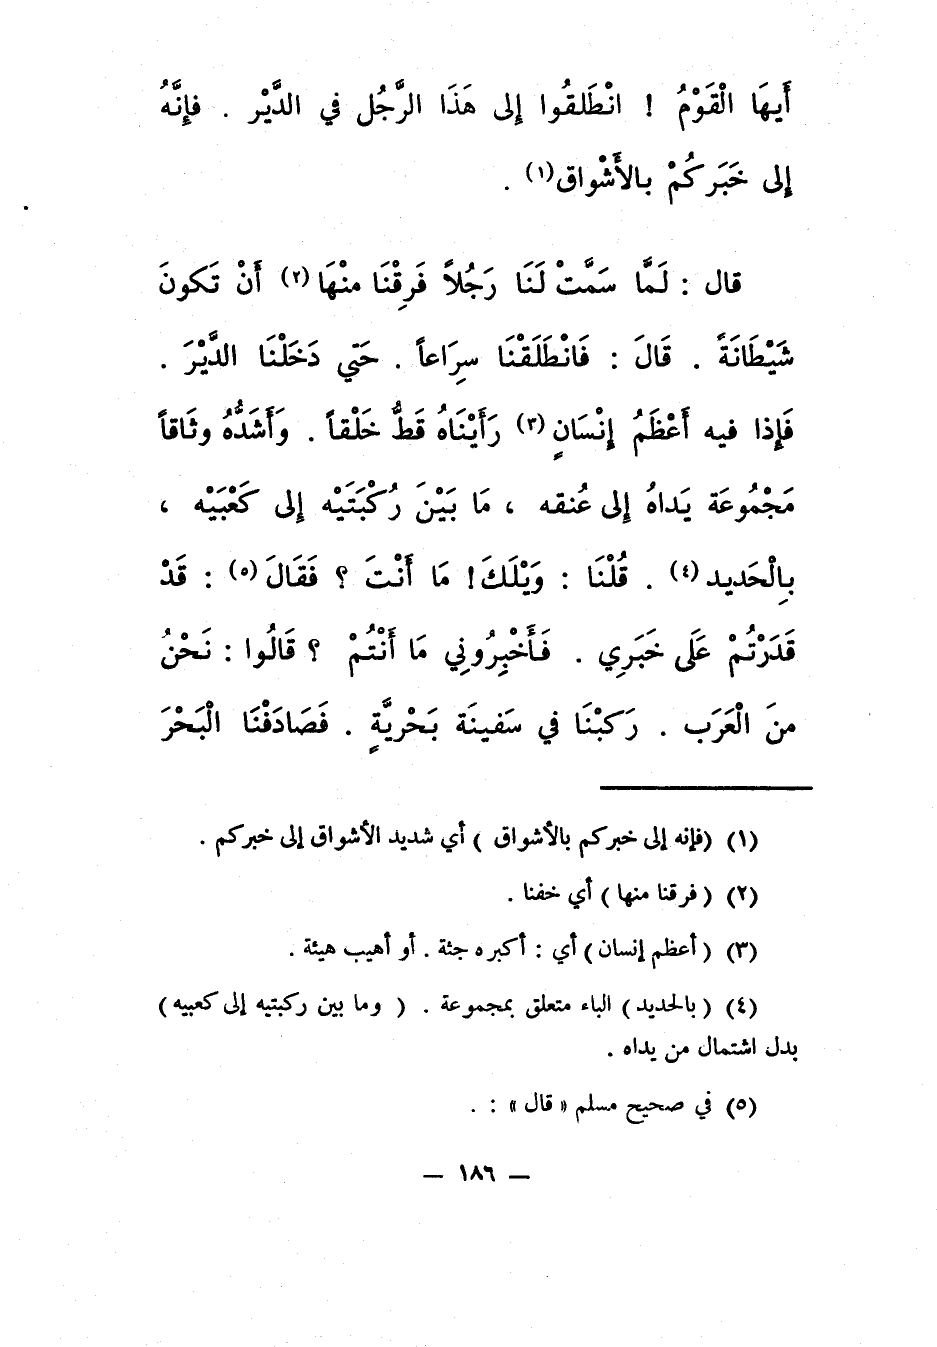 أَيهَا الْقَوْمُ ! انْطَلقُوا إِلى هَذَا الرَّجُل في الدَّيْر . فإِنَّهُ
إِلى خَبَركُمْ بالأَشْواق(١) .
قال : لَمَّا سَمَّتْ لَنَا رَجُلاً فَرِقْنَا منْهَا(٢) أَنْ تَكونَ
شَيْطَانَةً . قَالَ : فَانْطَلَقْنَا سِرَاعاً . حَتي دَخَلْنَا الدَّيْرَ .
فَإِذا فيه أَعْظَمُ إِنْسَانٍ(٣) رَأَيْنَاهُ قَطُّ خَلْقاً . وَأَشَدُّهُ وثَاقاً
مَجْمُوعَة يَداهُ إِلى عُنقه ، مَا بَيْنَ رُكْبَتَيْه إِلى كَعْبَيْه ،
بِالْحَديد(٤) . قُلْنَا : وَيْلَكَ! مَا أَنْتَ ؟ فَقَالَ(٥) : قَدْ
قَدَرْتُمْ عَلَى خَبَرِي . فَأَخْبِرُونِي مَا أَنْتُمْ ؟ قَالُوا : نَحْنُ
منَ الْعَرَب . رَكبْنَا في سَفينَة بَحْريَّةٍ . فَصَادَفْنَا الْبَحْرَ
(١) (فإنه إلى خبركم بالأشواق ) أي شديد الأشواق إلى خبركم .
(٢) ( فرقنا منها ) أي خفنا .
(٣) ( أعظم إنسان ) أي : أكبره جثة . أو أهيب هيئة .
(٤) ( بالحديد ) الباء متعلق بمجموعة . ( وما بين ركبتيه إلى كعبيه )
بدل اشتمال من يداه .
(٥) في صحيح مسلم « قال » : .
— ١٨٦ —